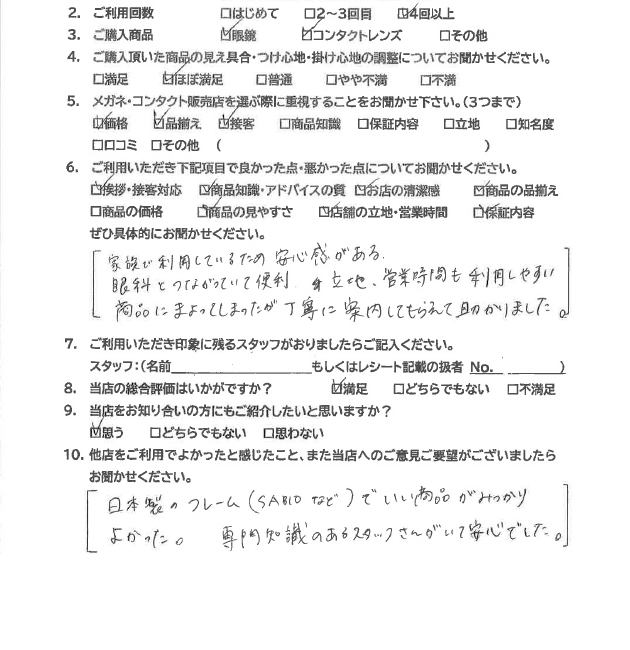 2. ご利用回数 □はじめて □2～3回目 ☑4回以上
3. ご購入商品 ☑眼鏡 ☑コンタクトレンズ □その他
4. ご購入頂いた商品の見え具合・つけ心地・掛け心地の調整についてお聞かせください。
□満足 ☑ほぼ満足 □普通 □やや不満 □不満
5. メガネ・コンタクト販売店を選ぶ際に重視することをお聞かせ下さい。(3つまで)
☑価格 ☑品揃え ☑接客 □商品知識 □保証内容 □立地 □知名度
□口コミ □その他 ( )
6. ご利用いただき下記項目で良かった点・悪かった点についてお聞かせください。
☑挨拶・接客対応 ☑商品知識・アドバイスの質 ☑お店の清潔感 ☑商品の品揃え
□商品の価格 ☑商品の見やすさ ☑店舗の立地・営業時間 ☑保証内容
ぜひ具体的にお聞かせください。
家族で利用しているため安心感がある。
眼科とつながっていて便利。立地、営業時間も利用しやすい
商品にまよってしまったが丁寧に案内してもらえて助かりました。
7. ご利用いただき印象に残るスタッフがおりましたらご記入ください。
スタッフ:(名前 もしくはレシート記載の扱者 No. )
8. 当店の総合評価はいかがですか? ☑満足 □どちらでもない □不満足
9. 当店をお知り合いの方にもご紹介したいと思いますか?
☑思う □どちらでもない □思わない
10. 他店をご利用でよかったと感じたこと、また当店へのご意見ご要望がございましたら
お聞かせください。
日本製のフレーム(SABIOなど)でいい商品がみつかり
よかった。 専門知識のあるスタッフさんがいて安心でした。